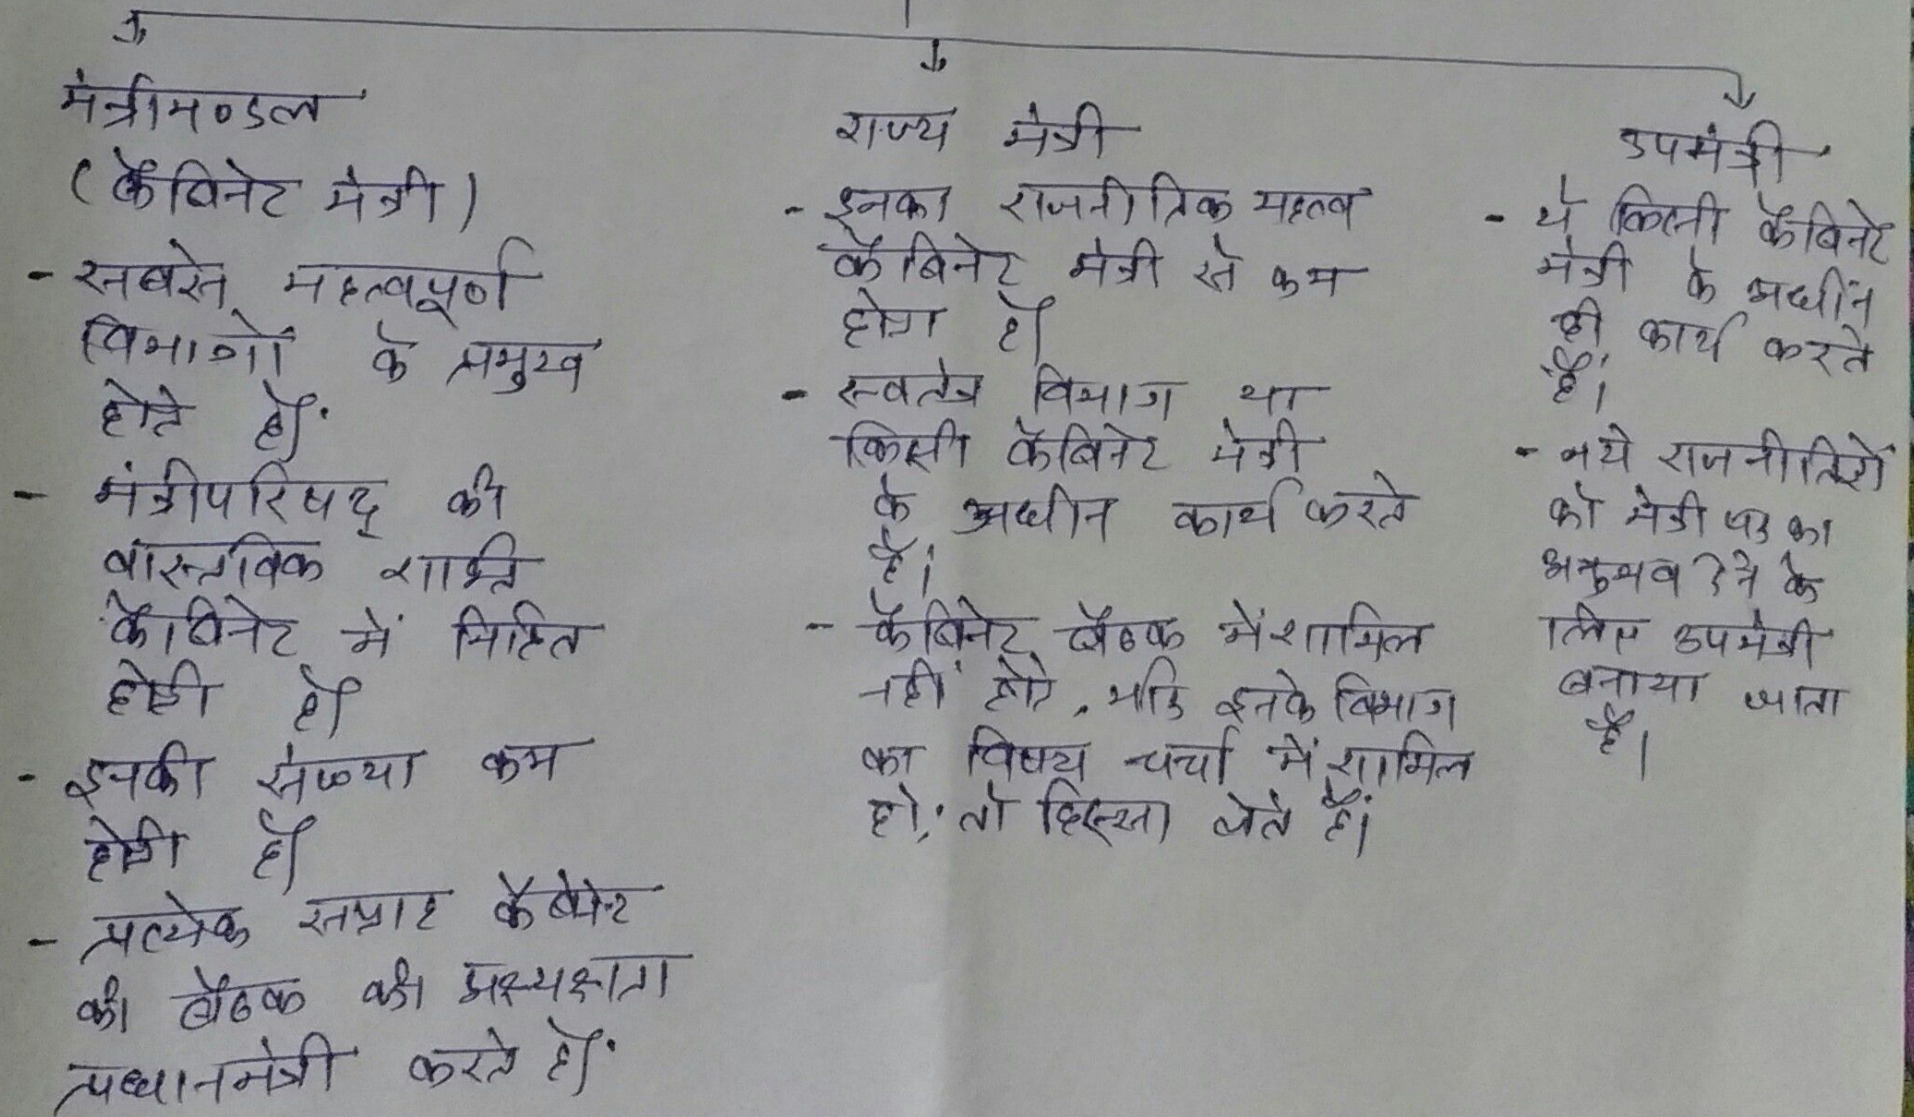 मंत्रीमण्डल
(कैबिनेट मंत्री)
- सबसे महत्वपूर्ण
विभागों के प्रमुख
होते हैं।
- मंत्रीपरिषद् की
वास्तविक शक्ति
कैबिनेट में निहित
होती है।
- इनकी संख्या कम
होती है।
- प्रत्येक सप्ताह कैबिनेट
की बैठक की अध्यक्षता
प्रधानमंत्री करते हैं।
राज्य मंत्री
- इनका राजनीतिक महत्व
कैबिनेट मंत्री से कम
होता है।
- स्वतंत्र विभाग या
किसी कैबिनेट मंत्री
के अधीन कार्य करते
है।
- कैबिनेट बैठक में शामिल
नहीं होते, यदि इनके विभाग
का विषय चर्चा में शामिल
हो, तो हिस्सा लेते हैं।
उपमंत्री
- ये किसी कैबिनेट
मंत्री के अधीन
ही कार्य करते
हैं।
- नये राजनीतिज्ञों
को मंत्री पद का
अनुभव देने के
लिए उपमंत्री
बनाया जाता
है।